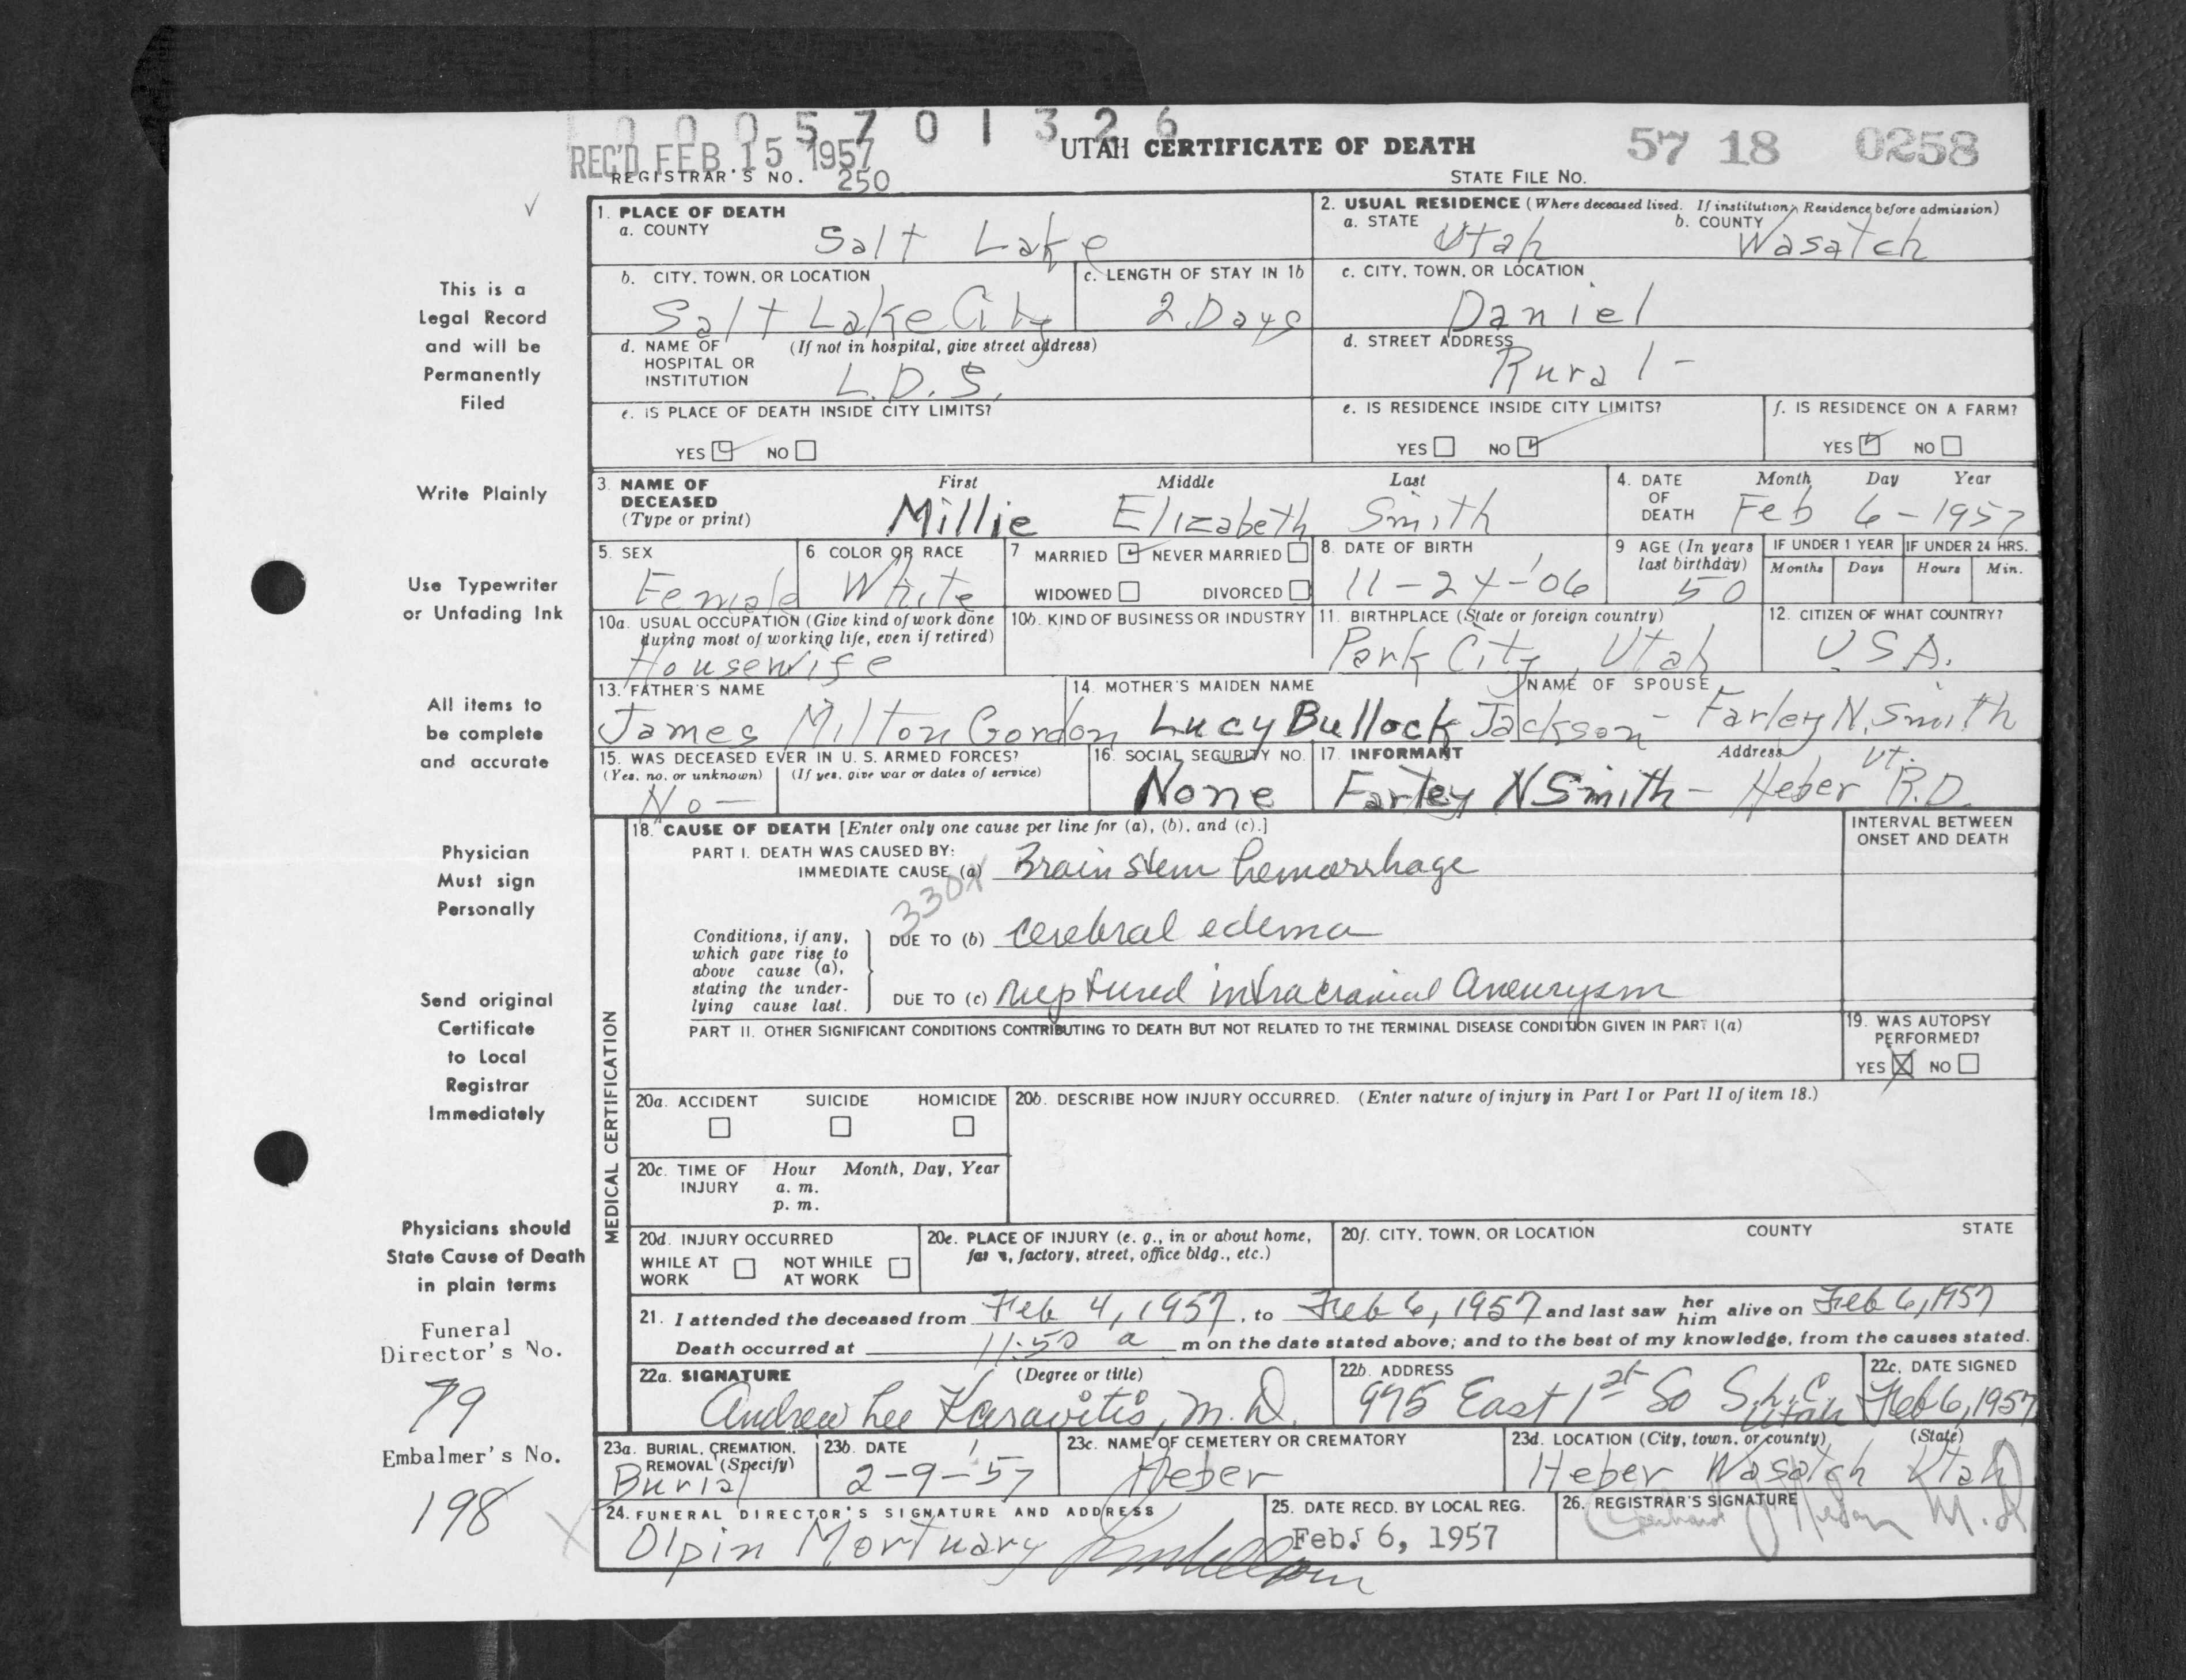 0005701326
REC'D FEB. 15 1957
UTAH CERTIFICATE OF DEATH
57 18 0258
REGISTRAR'S NO. 250
STATE FILE NO.
1. PLACE OF DEATH
a. COUNTY Salt Lake
2. USUAL RESIDENCE (Where deceased lived. If institution, Residence before admission)
a. STATE Utah b. COUNTY Wasatch
b. CITY, TOWN, OR LOCATION Salt Lake City
c. LENGTH OF STAY IN 1b 2 Days
c. CITY, TOWN, OR LOCATION Daniel
d. NAME OF HOSPITAL OR INSTITUTION (If not in hospital, give street address) L.D.S.
d. STREET ADDRESS Rural -
e. IS PLACE OF DEATH INSIDE CITY LIMITS?
YES NO
e. IS RESIDENCE INSIDE CITY LIMITS?
YES NO
f. IS RESIDENCE ON A FARM?
YES NO
3. NAME OF DECEASED (Type or print)
First Middle Last
Millie Elizabeth Smith
4. DATE OF DEATH
Month Day Year
Feb 6-1957
5. SEX Female
6 COLOR OR RACE White
7 MARRIED NEVER MARRIED
WIDOWED DIVORCED
8. DATE OF BIRTH 11-24-'06
9 AGE (In years last birthday) 50
IF UNDER 1 YEAR
Months Days
IF UNDER 24 HRS.
Hours Min.
10a. USUAL OCCUPATION (Give kind of work done during most of working life, even if retired)
Housewife
10b. KIND OF BUSINESS OR INDUSTRY
11. BIRTHPLACE (State or foreign country)
Park City, Utah
12. CITIZEN OF WHAT COUNTRY?
USA.
13. FATHER'S NAME
James Milton Gordon
14. MOTHER'S MAIDEN NAME
Lucy Bullock Jackson -
NAME OF SPOUSE
Farley N. Smith
15. WAS DECEASED EVER IN U. S. ARMED FORCES?
(Yes, no, or unknown) (If yes, give war or dates of service)
No -
16. SOCIAL SECURITY NO.
None
17. INFORMANT Address
Farley N Smith - Heber Ut. R.D.
MEDICAL CERTIFICATION
18. CAUSE OF DEATH [Enter only one cause per line for (a), (b), and (c).]
INTERVAL BETWEEN ONSET AND DEATH
PART I. DEATH WAS CAUSED BY:
IMMEDIATE CAUSE (a) Brain stem hemorrhage
330X
Conditions, if any, which gave rise to above cause (a), stating the underlying cause last.
DUE TO (b) cerebral edema
DUE TO (c) ruptured intracranial aneurysm
PART II. OTHER SIGNIFICANT CONDITIONS CONTRIBUTING TO DEATH BUT NOT RELATED TO THE TERMINAL DISEASE CONDITION GIVEN IN PART I(a)
19. WAS AUTOPSY PERFORMED?
YES NO
20a. ACCIDENT SUICIDE HOMICIDE
20b. DESCRIBE HOW INJURY OCCURRED. (Enter nature of injury in Part I or Part II of item 18.)
20c. TIME OF INJURY Hour Month, Day, Year
a. m.
p. m.
20d. INJURY OCCURRED
WHILE AT WORK NOT WHILE AT WORK
20e. PLACE OF INJURY (e. g., in or about home, farm, factory, street, office bldg., etc.)
20f. CITY, TOWN, OR LOCATION COUNTY STATE
21. I attended the deceased from Feb 4, 1957, to Feb 6, 1957 and last saw her him alive on Feb 6, 1957
Death occurred at 11:50 a m on the date stated above; and to the best of my knowledge, from the causes stated.
22a. SIGNATURE (Degree or title)
Andrew Lee Karavitis, M.D.
22b. ADDRESS
975 East 1st So S.L.C. Utah
22c. DATE SIGNED
Feb 6, 1957
23a. BURIAL, CREMATION, REMOVAL (Specify)
Burial
23b. DATE
2-9-57
23c. NAME OF CEMETERY OR CREMATORY
Heber
23d. LOCATION (City, town, or county) (State)
Heber Wasatch Utah
24. FUNERAL DIRECTOR'S SIGNATURE AND ADDRESS
Olpin Mortuary
25. DATE RECD. BY LOCAL REG.
Feb. 6, 1957
26. REGISTRAR'S SIGNATURE
M.D.
This is a
Legal Record
and will be
Permanently
Filed
Write Plainly
Use Typewriter
or Unfading Ink
All items to
be complete
and accurate
Physician
Must sign
Personally
Send original
Certificate
to Local
Registrar
Immediately
Physicians should
State Cause of Death
in plain terms
Funeral
Director's No.
79
Embalmer's No.
198